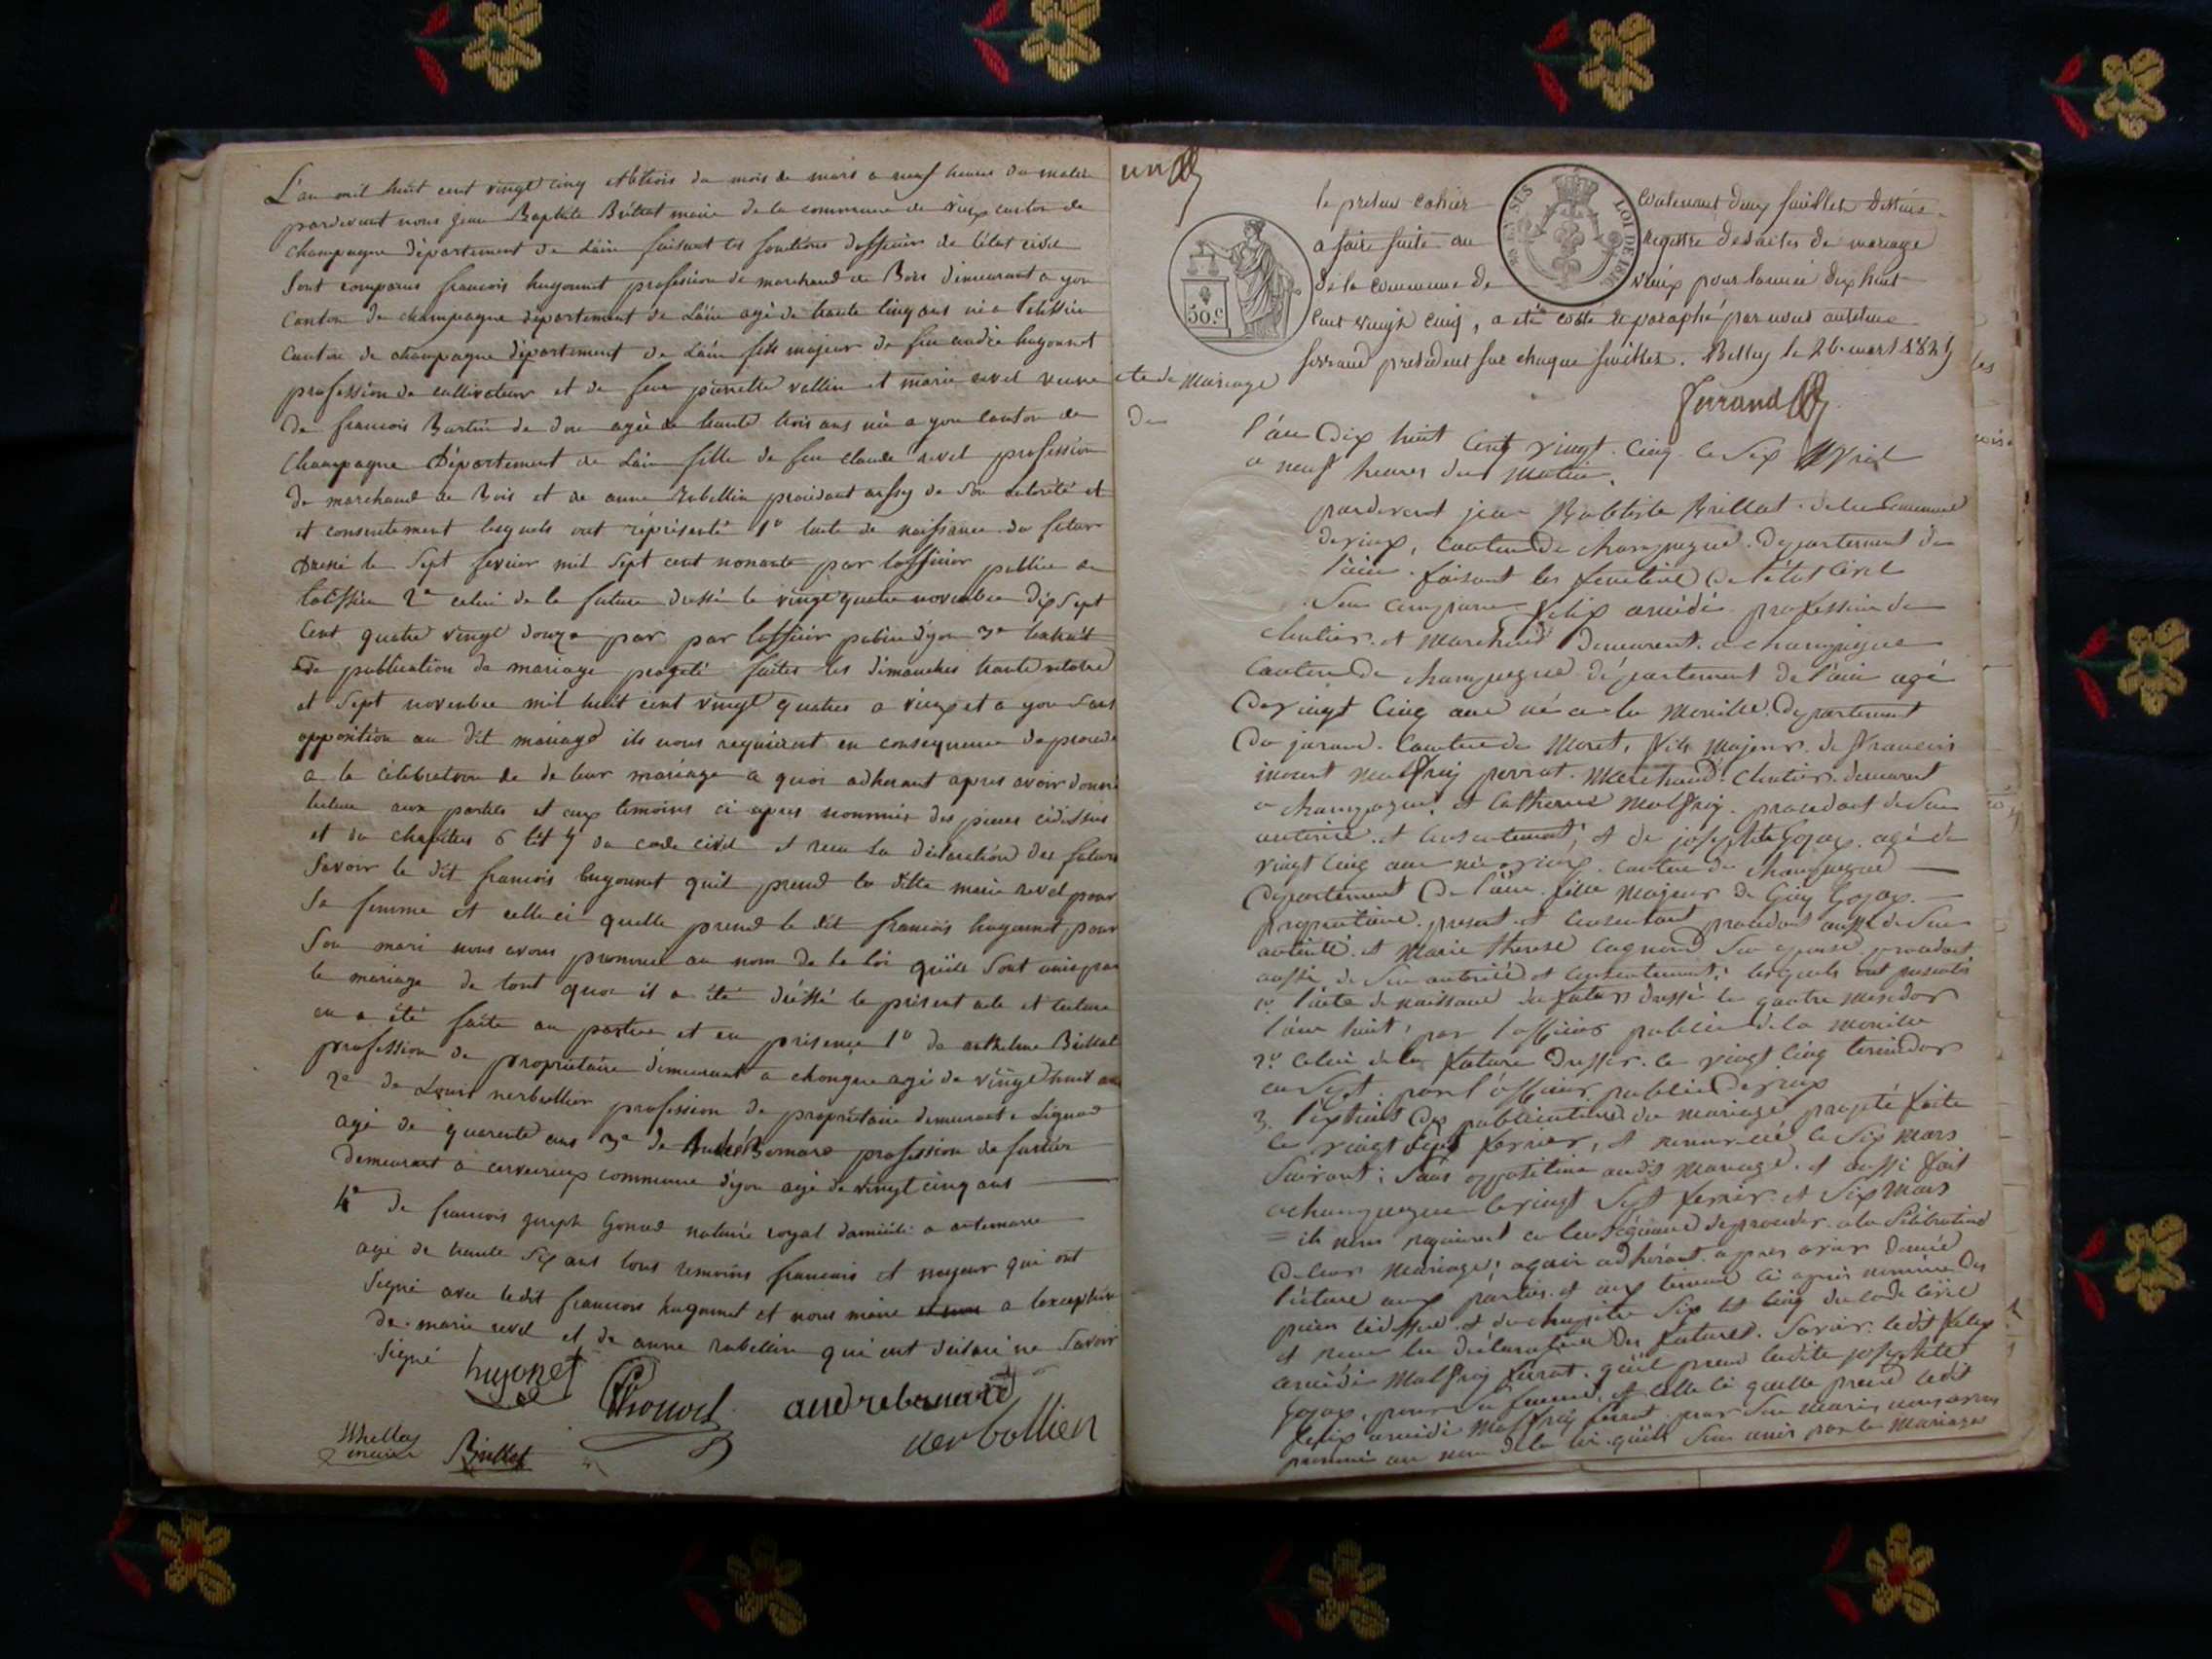 L'an mil huit cent vingt cinq et le trois du mois de mars a neuf heures du matin
pardevant nous jean Baptiste Brillat maire de la commune de vieux canton de
champagne département de Lain faisant les fonctions d'officier de l'état civil
sont comparus francois hugonnet profession de marchand de Bois demeurant a yon
canton de champagne département de Lain agé de trente cinq ans né a
canton de champagne département de Lain fils majeur de feu andré hugonnet
profession de cultivateur et de feue pierrette vallin et marie revel veuve
de francois Bertin de don agée de trente trois ans née a yon canton de
champagne Département de Lain fille de feu claude revel profession
de marchand de Bois et de anne Rubellin procédant aussy de son autorité et
et consentement lesquels ont représenté 1º lacte de naissance du futur
dressé le sept fevrier mil sept cent nonante par lofficier public de
2º celui de la future dressé le vingt quatre novembre dix sept
cent quatre vingt douze par par lofficier public dyon 3º lextrait
de publication de mariage projeté faites les dimanches trente octobre
et sept novembre mil huit cent vingt quatre a vieux et a yon sans
opposition au dit mariage ils nous requierent en consequence de proceder
a la célébration de de leur mariage a quoi adherant apres avoir donné
lecture aux parties et aux temoins ci apres nommés des pieces cidessus
et du chapitre 6 tit 5 du code civil et recu la déclaration des futurs
savoir le dit francois hugonnet quil prend la ditte marie revel pour
sa femme et celle ci quelle prend le dit francois hugonnet pour
son mari nous avons prononcé au nom de la loi quils sont unis par
le mariage de tout quoi il a été dressé le présent acte et lecture
en a été faite au parties et en présence 1º de anthelme Brillat
profession de propriétaire demeurant a chongne agé de vingt huit ans
2º de Louis nerbollier profession de propriétaire demeurant a Lignod
agé de quarente ans 3º de André Bernard profession de
demeurant a cerveyrieux commune dyon agé de vingt cinq ans
4º de francois joseph Gonod notaire royal domicilié a artemare
agé de trente six ans tous temoins francais et majeur qui ont
signé avec ledit francois hugonnet et nous maire a lexception
de marie revel et de anne rubellin qui ont déclaré ne savoir
signé
hugonet
Gonod
andrebernard
nerbollier
Brillat
maire
Brillat
un
le présent cahier contenant deux feuillets destinés
a faire suite au registre des actes de mariage
de la commune de vieux pour lannée dix huit
cent vingt cinq, a été coté et paraphé par nous anthelme
ferrand president sur chaque feuillet. Belley le 26 mars 1825
ferrand
50.C
LOI DE 1816
cte de Mariage
De
l'an Dix huit cent vingt cinq le six Avril
a neuf heures du matin.
pardevant jean Babtiste Brillat de la commune
de vieux, canton de champagne département de
l'ain faisant les fonctions de l'état civil
sont comparu felix amédé profession de
et marchand demeurant a champagne
canton de champagne département de l'ain agé
de vingt cinq ans né a la Mouille Département
du jura canton de Moret, fils majeur de francois
malfroy perrat marchand demeurant
a champagne et catherine malfroy procédant de son
autorité et consentement, et de josephte Gojoz agé de
vingt cinq ans né a vieux canton de champagne
département de l'ain fille majeur de Guy Gojoz
propriétaire présent et consentant procédant aussi de son
autorité et Marie therese cagnard son épouse procédant
aussi de son autorité et consentement; lesquels ont présentés
1º l'acte de naissance du futur dressé le quatre messidor
l'an huit, par l'officier public de la mouille
2º celui de la future dressé le vingt cinq termidor
an sept par l'officier public de vieux
3. l'extrait des publications du mariage projeté faite
le vingt sept fevrier, et le six mars
suivant; sans opposition audit mariage et aussi fait
a champagne le vingt sept fevrier et six mars
= ils nous requierent en conséquence de proceder a la célébration
de leur mariage; a quoi adhérant apres avoir donné
lecture aux parties et aux temoins ci apres nommé des
pieces cidessus et du chapitre six tit cinq du code civil
et recu la déclaration des futures savoir ledit felix
amédé Malfroy perrat qu'il prend ladite josephte
Gojoz, pour sa femme, et celle ci quelle prend ledit
felix amédé Malfroy perrat pour son mari, nous avons
prononcé au nom de la loi qu'ils sont unis par le mariage